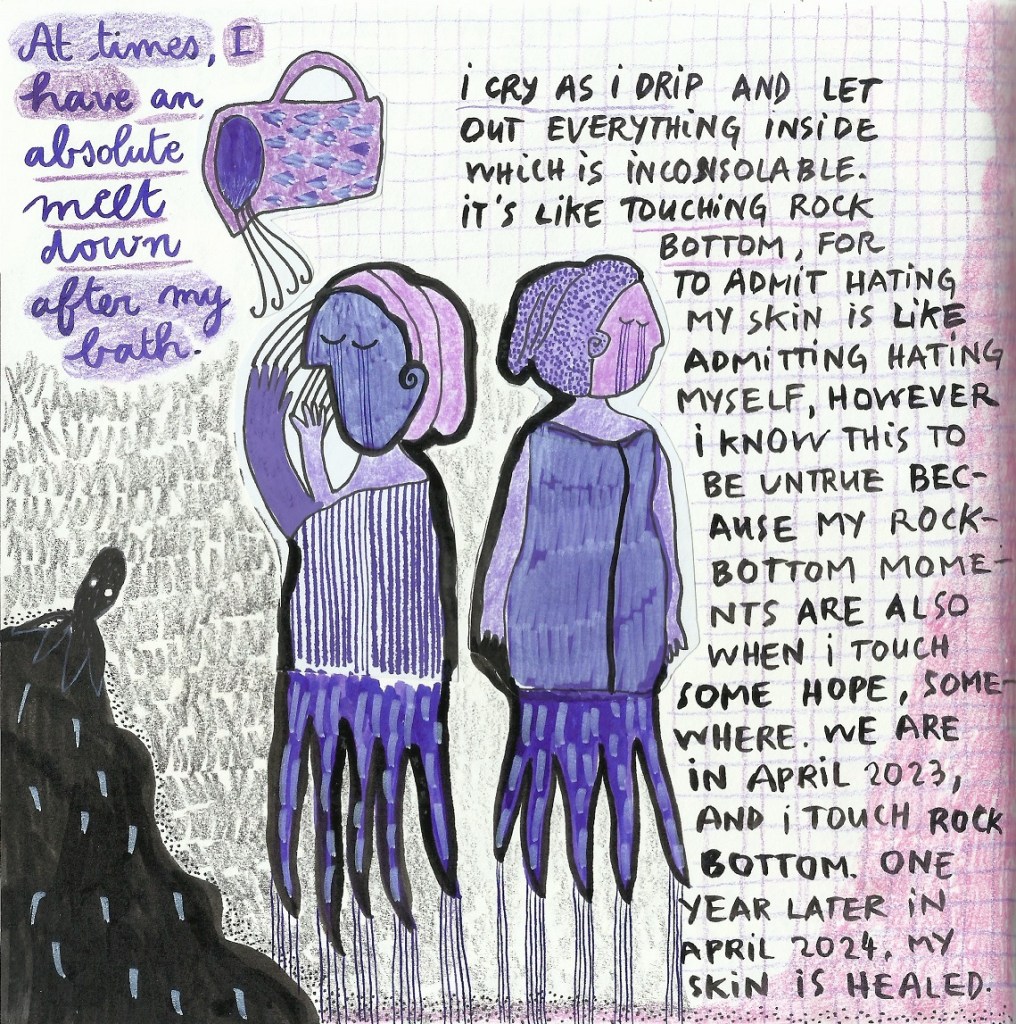 At times, I
have an
absolute
melt
down
after my
bath.
i CRY AS i DRIP AND LET
OUT EVERYTHING INSIDE
WHiCH iS iNCONSOLABLE.
iT'S LiKE TOUCHiNG ROCK
BOTTOM, FOR
TO ADMiT HATiNG
MY SKiN iS LiKE
ADMiTTiNG HATiNG
MYSELF, HOWEVER
i KNOW THiS TO
BE UNTRUE BEC-
AUSE MY ROCK-
BOTTOM MOME-
NTS ARE ALSO
WHEN i TOUCH
SOME HOPE, SOME-
WHERE. WE ARE
iN APRiL 2023,
AND i TOUCH ROCK
BOTTOM. ONE
YEAR LATER iN
APRiL 2024, MY
SKiN iS HEALED.